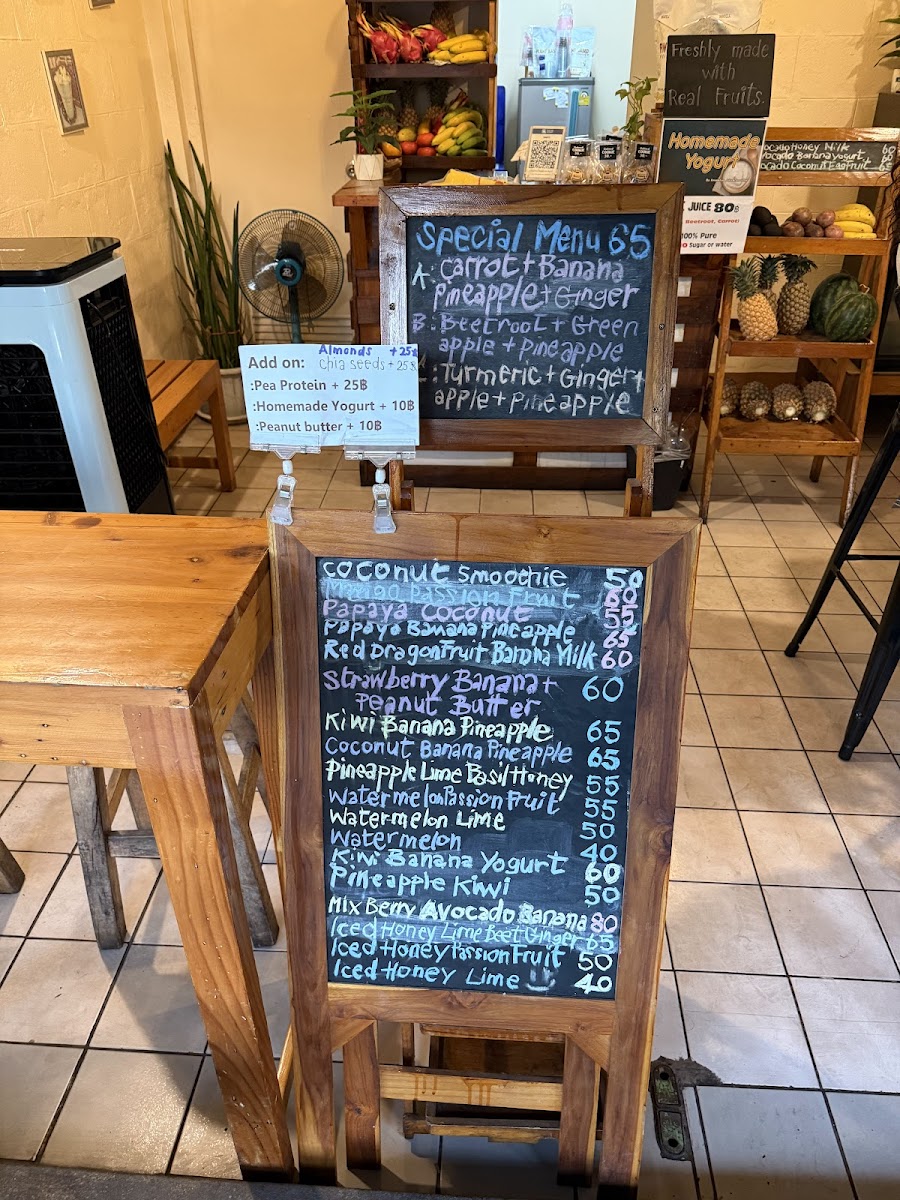 Freshly made
with
Real Fruits.
Homemade
Yogurt
JUICE 80฿
Beetroot, Carrot!
100% Pure
Sugar or water
Honey Milk 60
Banana Yogurt
Special Menu 65
A: Carrot + Banana
Pineapple + Ginger
B: Beetroot + Green
apple + pineapple
: Turmeric + Ginger +
apple + pineapple
Almonds +25฿
Add on: chia seeds + 25฿
:Pea Protein + 25฿
:Homemade Yogurt + 10฿
:Peanut butter + 10฿
coconut Smoothie 50
Mango Passion Fruit 60
Papaya Coconut 55
Papaya Banana Pineapple 65
Red DragonFruit Banana Milk 60
Strawberry Banana + 60
Peanut Butter
Kiwi Banana Pineapple 65
Coconut Banana Pineapple 65
Pineapple Lime Basil Honey 55
Watermelon Passion Fruit 55
Watermelon Lime 50
Watermelon 40
Kiwi Banana Yogurt 60
Pineapple Kiwi 50
Mix Berry Avocado Banana 80
Iced Honey Lime Beet Ginger 65
Iced Honey Passion Fruit 50
Iced Honey Lime 40